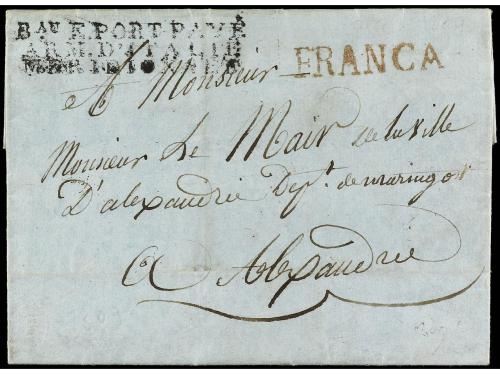 Bᴬᵁ F. PORT PAYÉ
ARM. D'ITALIE
FRANCA
A Monsieur
Monsieur Le Mair de la ville
D'alexandrie Depᵗ. de maringo
A Alexandrie